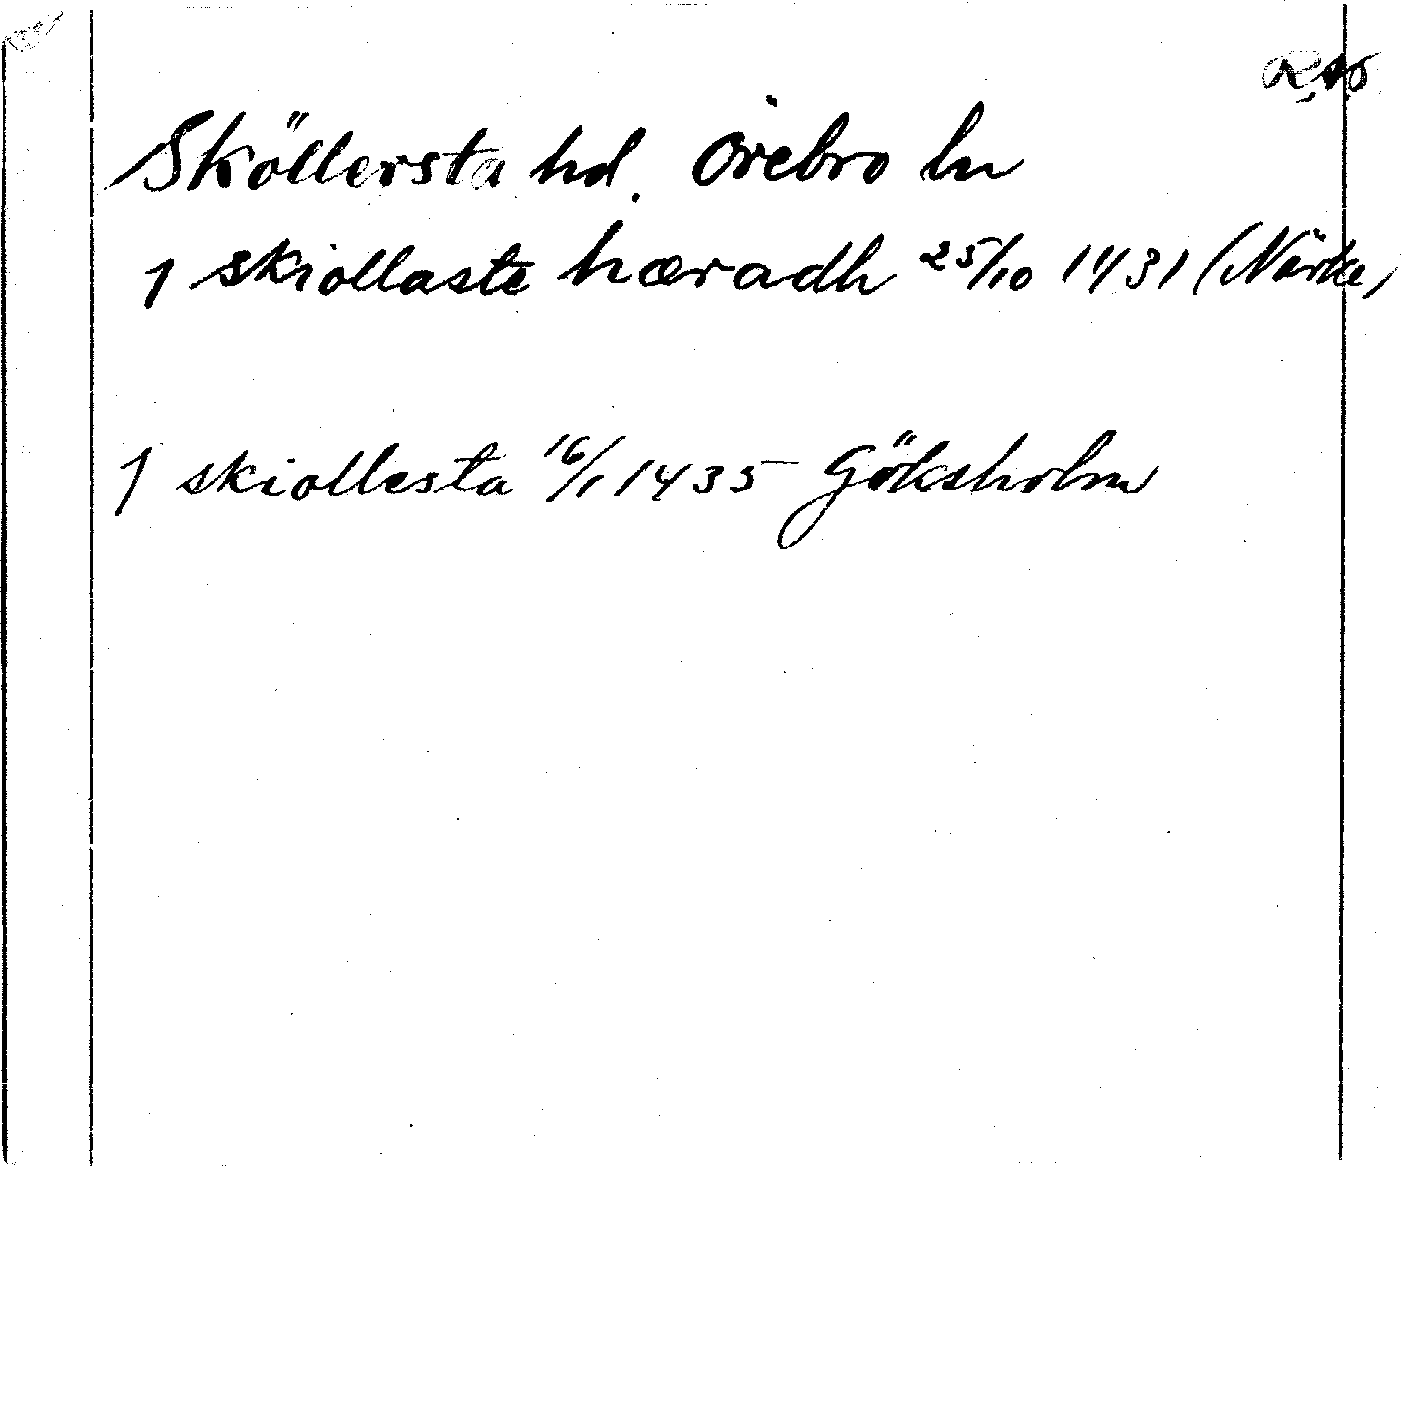 Sköllersta hd. Örebro ln
1 skiollaste hæradh 25/10 1431 (Närke)
1 skiollesta 16/1 1435 Göksholm